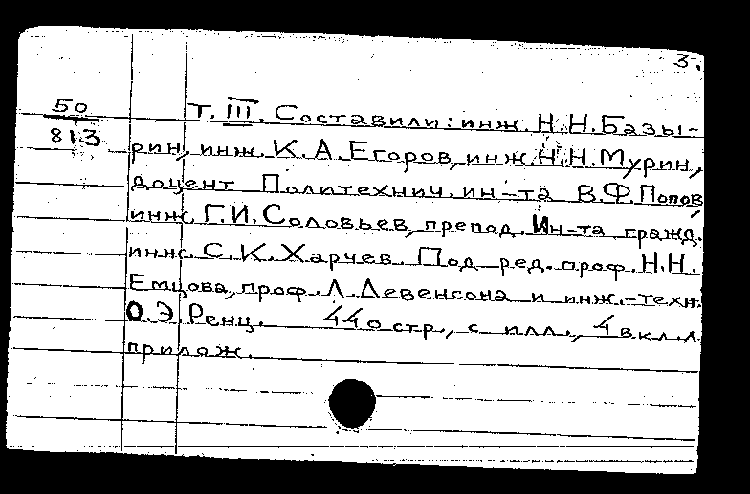 3.
50
813
Т. III. Составили: инж. Н.Н.Базы-
рин, инж. К.А.Егоров, инж. Н.Н.Мурин,
доцент Политехнич. ин-та В.Ф.Попов,
инж. Г.И.Соловьев, препод. Ин-та гражд.
инж. С.К.Харчев. Под ред. проф. Н.Н.
Емцова, проф. Л.Левенсона и инж.-техн.
О.Э.Ренц. 440 стр., с илл., 4 вкл.л.
прилож.